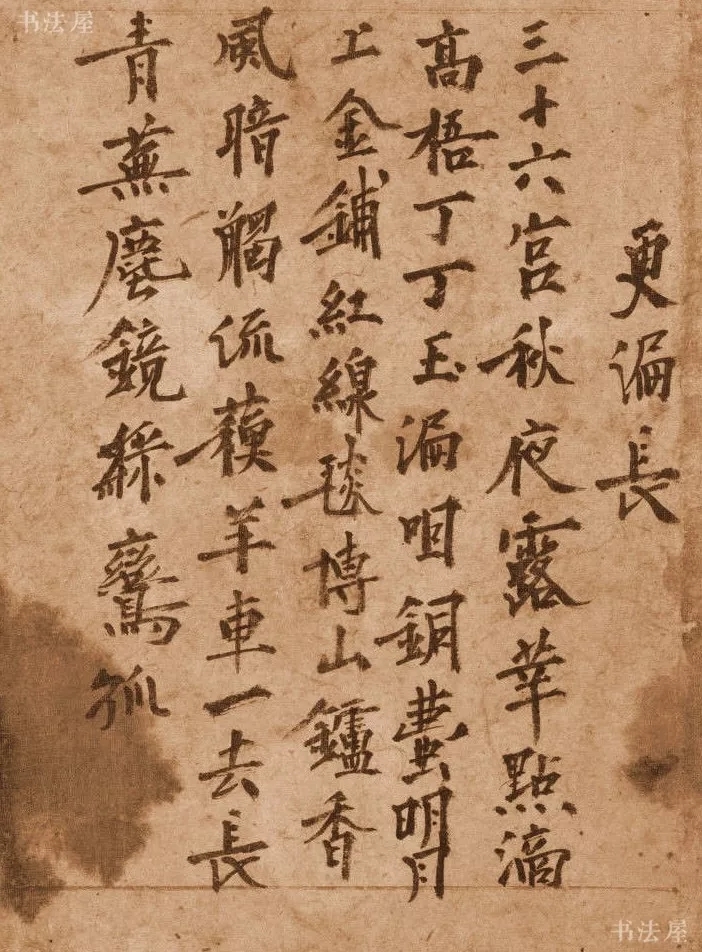 书法屋
更漏長
三十六宫秋夜露華點滴
高梧丁丁玉漏咽銅壺明月
上金鋪紅線毯博山鑪香
風暗觸流蘓羊車一去長
青蕪塵鏡綵鸞孤
书法屋